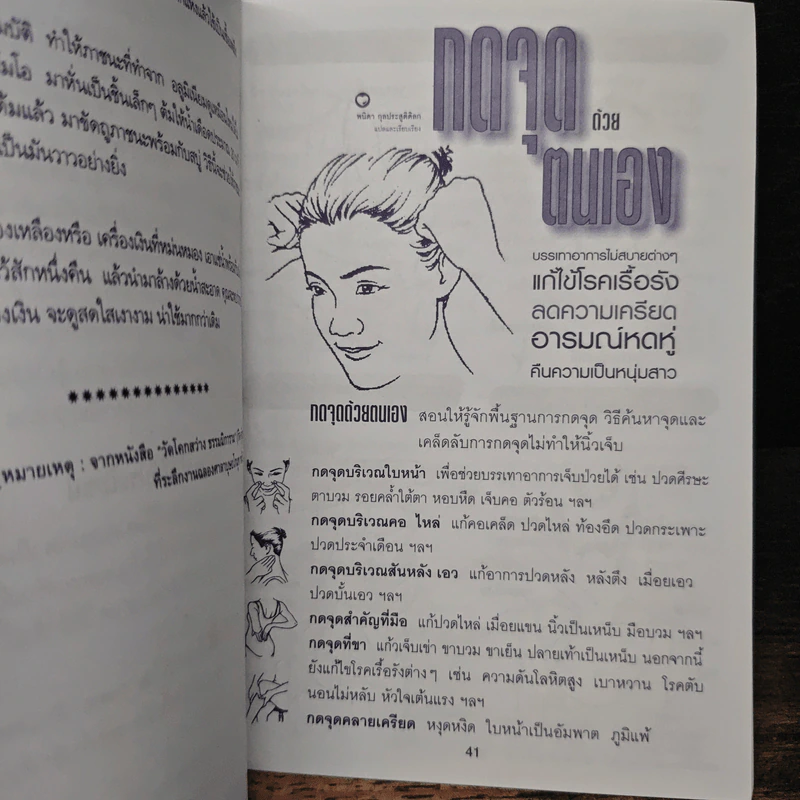 มบัติ ทำให้ภาชนะที่ทำจาก
มโอ มาหั่นเป็นชิ้นเล็กๆ ต้มให้น้ำเดือด
ต้มแล้ว มาขัดถูภาชนะพร้อมกับสบู่
เป็นมันวาวอย่างยิ่ง
องเหลืองหรือ เครื่องเงินที่หม่นหมอง
ว้สักหนึ่งคืน แล้วนำมาล้างด้วยน้ำสะอาด
งเงิน จะดูสดใสเงางาม น่าใช้มากกว่าเดิม
**************
หมายเหตุ : จากหนังสือ "วัดโคกสว่าง
ที่ระลึกงานฉลอง
กดจุด
ด้วย
ตนเอง
พนิดา กุลประสูติดิลก
แปลและเรียบเรียง
บรรเทาอาการไม่สบายต่างๆ
แก้ไขโรคเรื้อรัง
ลดความเครียด
อารมณ์หดหู่
คืนความเป็นหนุ่มสาว
กดจุดด้วยตนเอง สอนให้รู้จักพื้นฐานการกดจุด วิธีค้นหาจุดและ
เคล็ดลับการกดจุดไม่ทำให้นิ้วเจ็บ
กดจุดบริเวณใบหน้า เพื่อช่วยบรรเทาอาการเจ็บป่วยได้ เช่น ปวดศีรษะ
ตาบวม รอยคล้ำใต้ตา หอบหืด เจ็บคอ ตัวร้อน ฯลฯ
กดจุดบริเวณคอ ไหล่ แก้คอเคล็ด ปวดไหล่ ท้องอืด ปวดกระเพาะ
ปวดประจำเดือน ฯลฯ
กดจุดบริเวณสันหลัง เอว แก้อาการปวดหลัง หลังตึง เมื่อยเอว
ปวดบั้นเอว ฯลฯ
กดจุดสำคัญที่มือ แก้ปวดไหล่ เมื่อยแขน นิ้วเป็นเหน็บ มือบวม ฯลฯ
กดจุดที่ขา แก้วเจ็บเข่า ขาบวม ขาเย็น ปลายเท้าเป็นเหน็บ นอกจากนี้
ยังแก้ไขโรคเรื้อรังต่างๆ เช่น ความดันโลหิตสูง เบาหวาน โรคตับ
นอนไม่หลับ หัวใจเต้นแรง ฯลฯ
กดจุดคลายเครียด หงุดหงิด ใบหน้าเป็นอัมพาต ภูมิแพ้
41